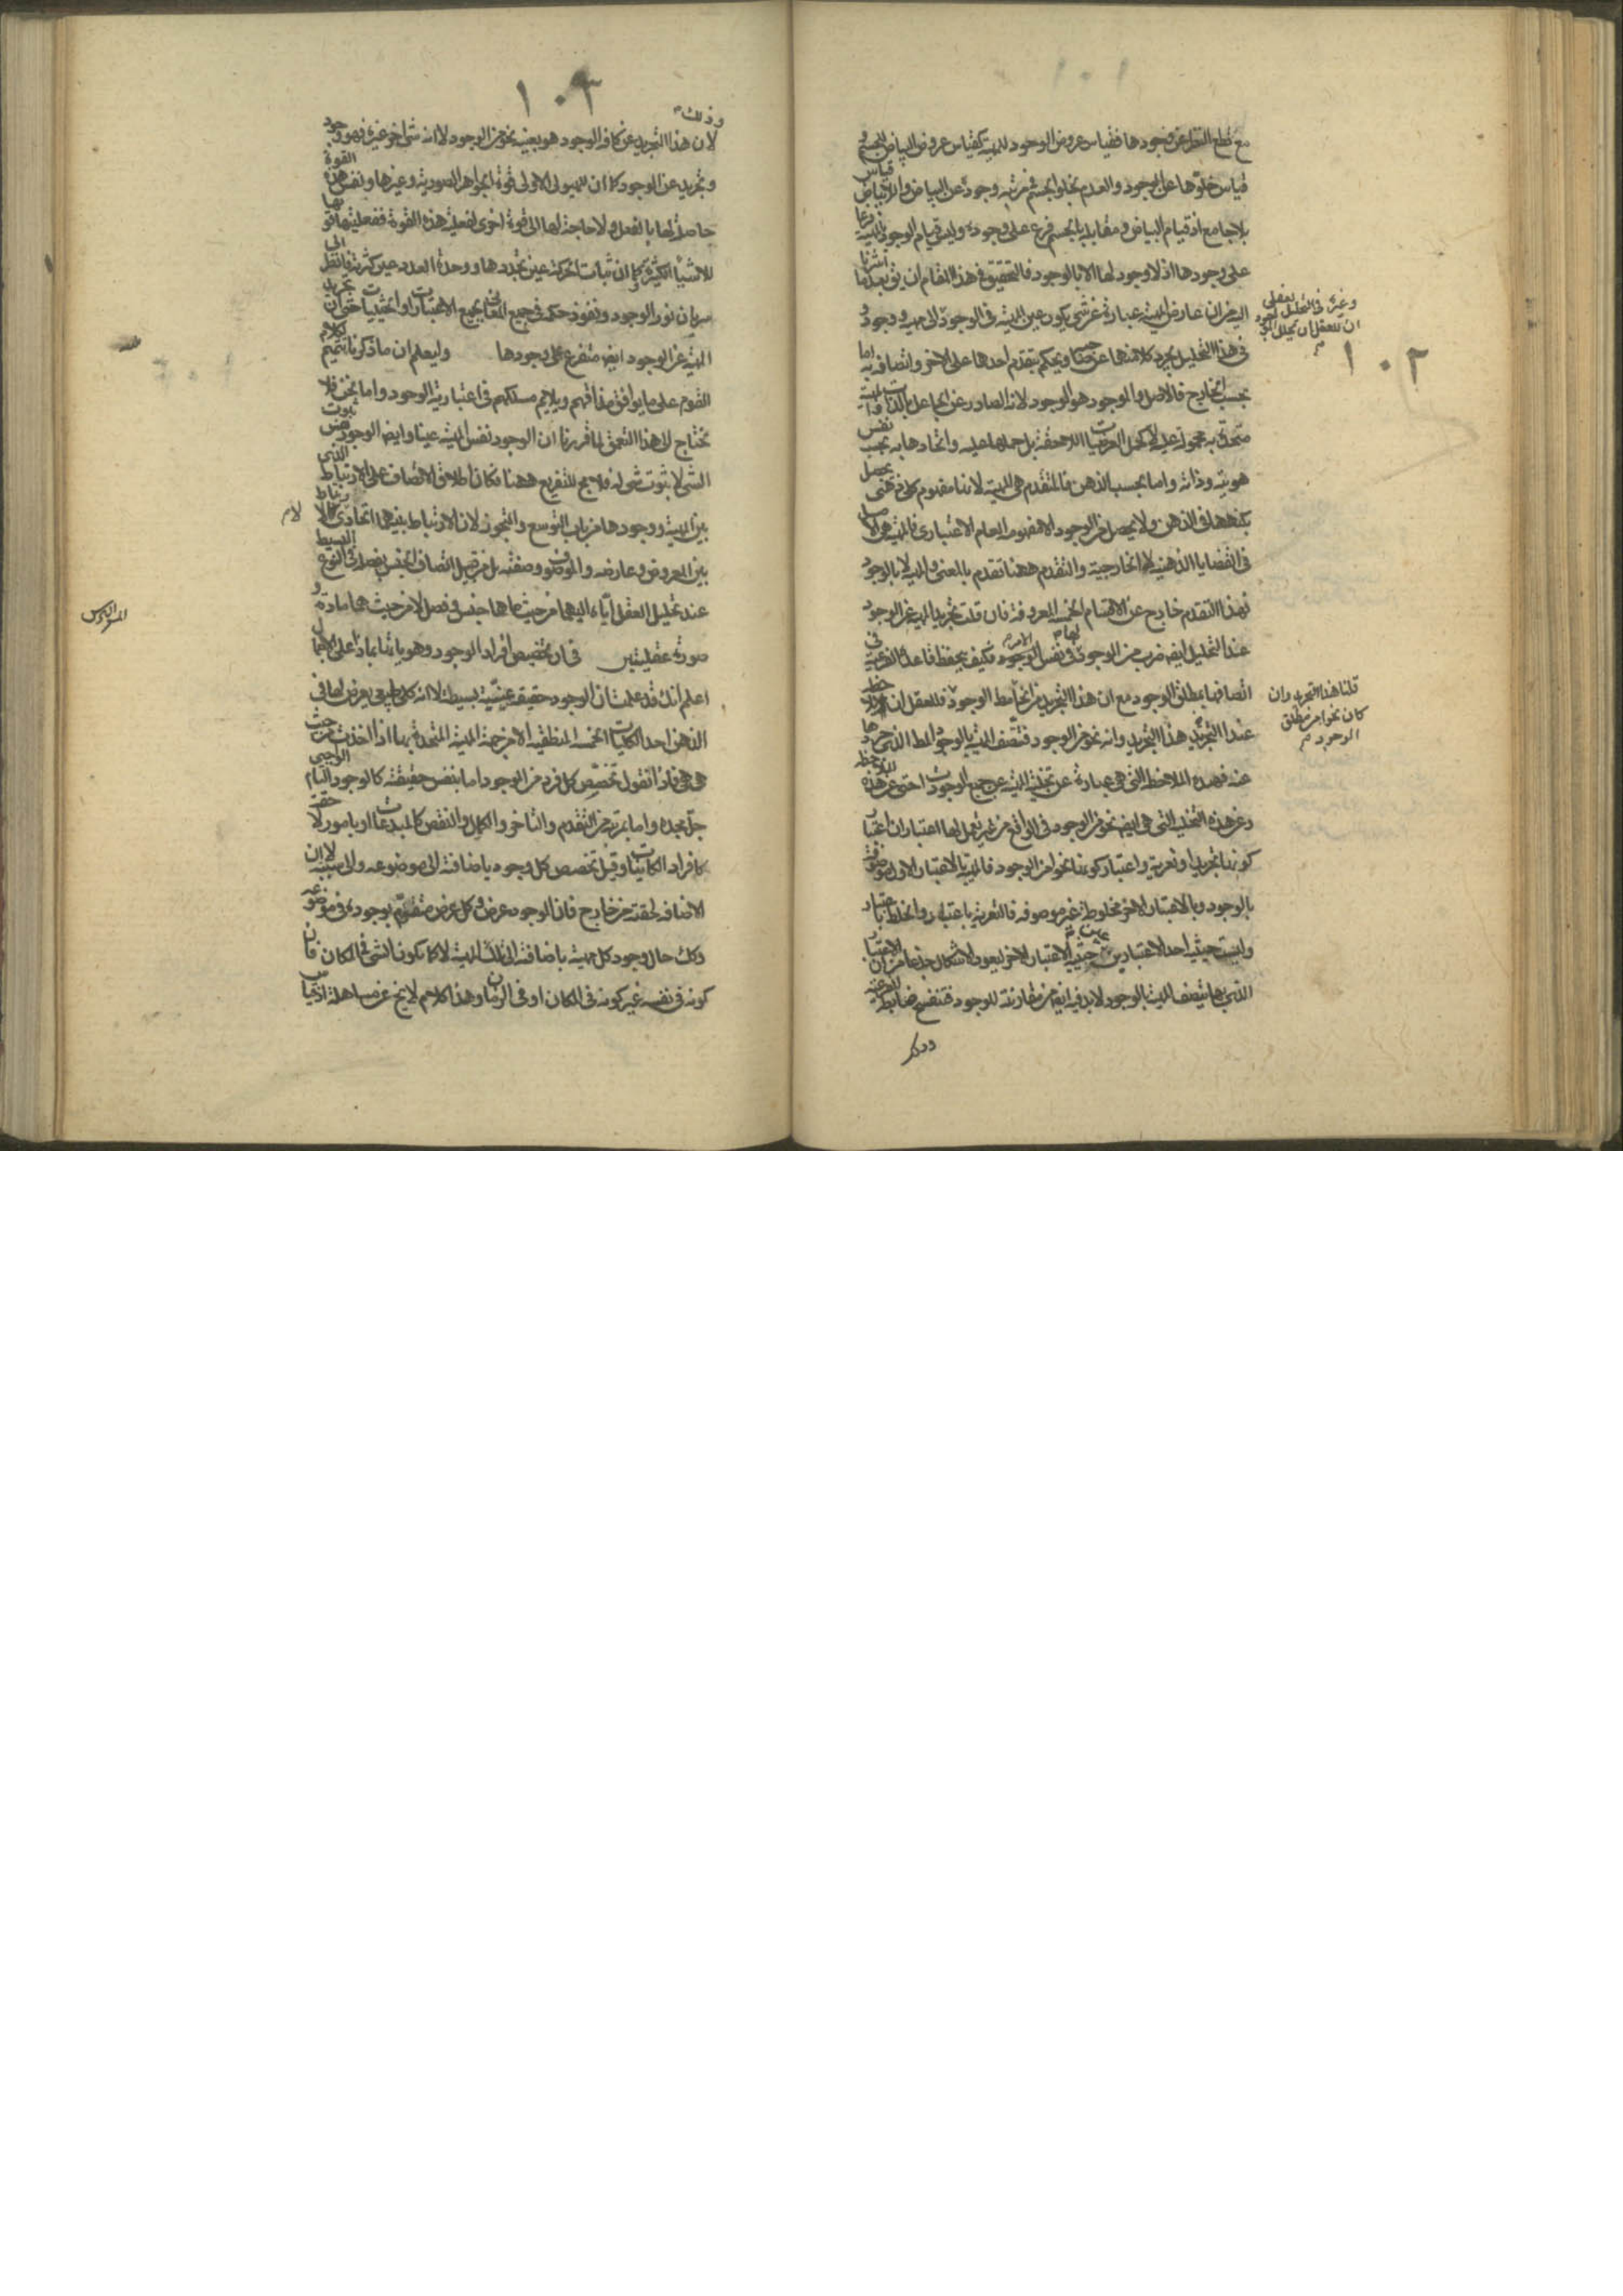 ١٠٢
مع قطع النظر عن وجودها فقياس عروض الوجود للمهية كقياس عروض البياض للجسم و
قياس خلوّها عن الوجود والعدم بخلو الجسم في مرتبة وجوده عن البياض واللابياض قياس
بلا جامع اذ قيام البياض ومقابله بالجسم فرع على وجوده وليس قيام الوجود بالمهية فرعا
على وجودها اذ لا وجود لها الا بالوجود فالتحقيق في هذا المقام ان يق بعد ما اشرنا
اليه من ان عارض المهية عبارة عن شي يكون عين المهية في الوجود
وغيره في التحليل العقلى
ان للعقل ان يحلل الموجود
الى مهية ووجود و
في هذا التحليل يجرد كلا منهما عن صاحبه ويحكم بتقدم احدهما على الاخر واتصافه به اما
بحسب الخارج فالاصل والموجود هو الوجود لانه الصادر عن الجاعل بالذات والمهية
متحدة به محمولة عليه لا كحمل العرضيات اللاحقة بل حملها عليه واتحادها به بحسب نفس
هويته وذاته واما بحسب الذهن فالمتقدم هي المهية لانها مفهوم كلي ذهني يحصل
بكنهها في الذهن ولا يحصل من الوجود الا مفهومه العام الاعتباري فالمهية هي الاصل
في القضايا الذهنية لا الخارجية والتقدم ههنا تقدم بالمعنى والمهية لا بالوجود
فهذا التقدم خارج عن الاقسام الخمسة المعروفة فان قلت تجريد المهية عن الوجود
عند التحليل ايضا ضرب من الوجود لها في نفس الامر فكيف يحفظ قاعدة الفرعية في
اتصافها بمطلق الوجود مع ان هذا التجريد من انحاء مطلق الوجود
قلنا هذا التجريد وان
كان نحوا من مطلق
الوجود
فللعقل ان يلاحظ
عند التجريد هذا التجريد وانه نحو من الوجود فتتصف المهية بالوجود المط الذي جردها
عنه فهذه الملاحظة التي هي عبارة عن تخلية المهية عن جميع الوجودات حتى عن هذه الملاحظة
وعن هذه التخلية التي هي ايضا نحو من الوجود في الواقع من غير تعمل لها اعتباران اعتبار
كونها تجريدا وتعرية واعتبار كونها نحوا من الوجود فالمهية بالاعتبار الاول موصوفة
بالوجود وبالاعتبار الاخر مخلوطة غير موصوفة فالتعرية باعتبار والخلط باعتبار
وليست حيثية احد الاعتبارين غير حيثية الاعتبار الاخر ليعود الاشكال جذعا من ان الاعتبار
الذي بها يتصف المهية بالوجود لا بد فيه ايضا من مقارنته للوجود فتنفسخ ضابطة الفرعية
وذلك
١٠٣
وذلك
لان هذا التجريد عن كافة الوجود هو بعينه نحو من الوجود لا انه شي اخر غيره فهو وجود
وتجريد عن الوجود كما ان للهيولى الاولى قوة الجواهر الصورية وغيرها ونفس هذه القوة
حاصلة لها بالفعل ولا حاجة لها الى قوة اخرى لفعلية هذه القوة ففعليتها قوتها
للاشياء الكثيرة وكما ان ثبات الحركة عين تجددها ووحدة العدد عين كثرته فانظر الى
سريان نور الوجود ونفوذ حكمه في جميع المعاني بجميع الاعتبارات والحيثيات حتى ان تجريد
المهية عن الوجود ايضا متفرع على وجودها وليعلم ان ما ذكرناه تتميم لكلام
القوم على ما يوافق مذاقهم ويلايم مسلكهم في اعتبارية الوجود واما نحن فلا
نحتاج الى هذا التعمق لما قررنا ان الوجود نفس المهية عينا وايضا الوجود نفس ثبوت
الشي لا ثبوت شي له فلا مجال للتفريع ههنا فكان اطلاق الاتصاف على الارتباط الذي
بين المهية ووجودها من باب التوسع والتجوز لان الارتباط بينهما اتحادي لا كالارتباط
بين المعروض وعارضه والموصوف وصفته بل من قبيل اتصاف الجنس بفصله في النوع البسيط
عند تحليل العقل اياه اليهما من حيث هما جنس وفصل لا من حيث هما مادة و
صورة عقليتين في ان تخصيص افراد الوجود وهوياتها بماذا على الاجمال
اعلم انك قد علمت ان الوجود حقيقة عينية بسيطة لا انه كلي طبيعي يعرض لها في
الذهن احد الكليات الخمسة المنطقية الا من جهة المهية المتحدة بها اذا اخذت من حيث
هي هي فاذن نقول تخصص كل فرد من الوجود اما بنفس حقيقته كالوجود التام الواجبي
جل مجده واما بمرتبة من التقدم والتاخر والكمال والنقص كالمبدعات او بامور لاحقة
كافراد الكائنات وقيل تخصص كل وجود باضافته الى موضوعه والى سببه لا ان
الاضافة لحقته من خارج فان الوجود عرض وكل عرض متقوم بوجوده في موضوعه
وكك حال وجود كل مهية باضافته الى تلك المهية لا كما يكون الشي في المكان فان
كونه في نفسه غير كونه في المكان او في الزمان وهذا كلام لا يخ عن مساهلة اذ قياس